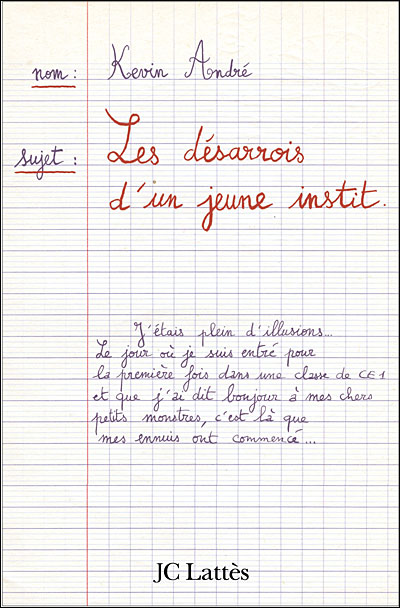 nom : Kevin André
sujet : Les désarrois
d'un jeune instit.
J'étais plein d'illusions...
Le jour où je suis entré pour
la première fois dans une classe de CE1
et que j'ai dit bonjour à mes chers
petits monstres, c'est là que
mes ennuis ont commencé...
JC Lattès